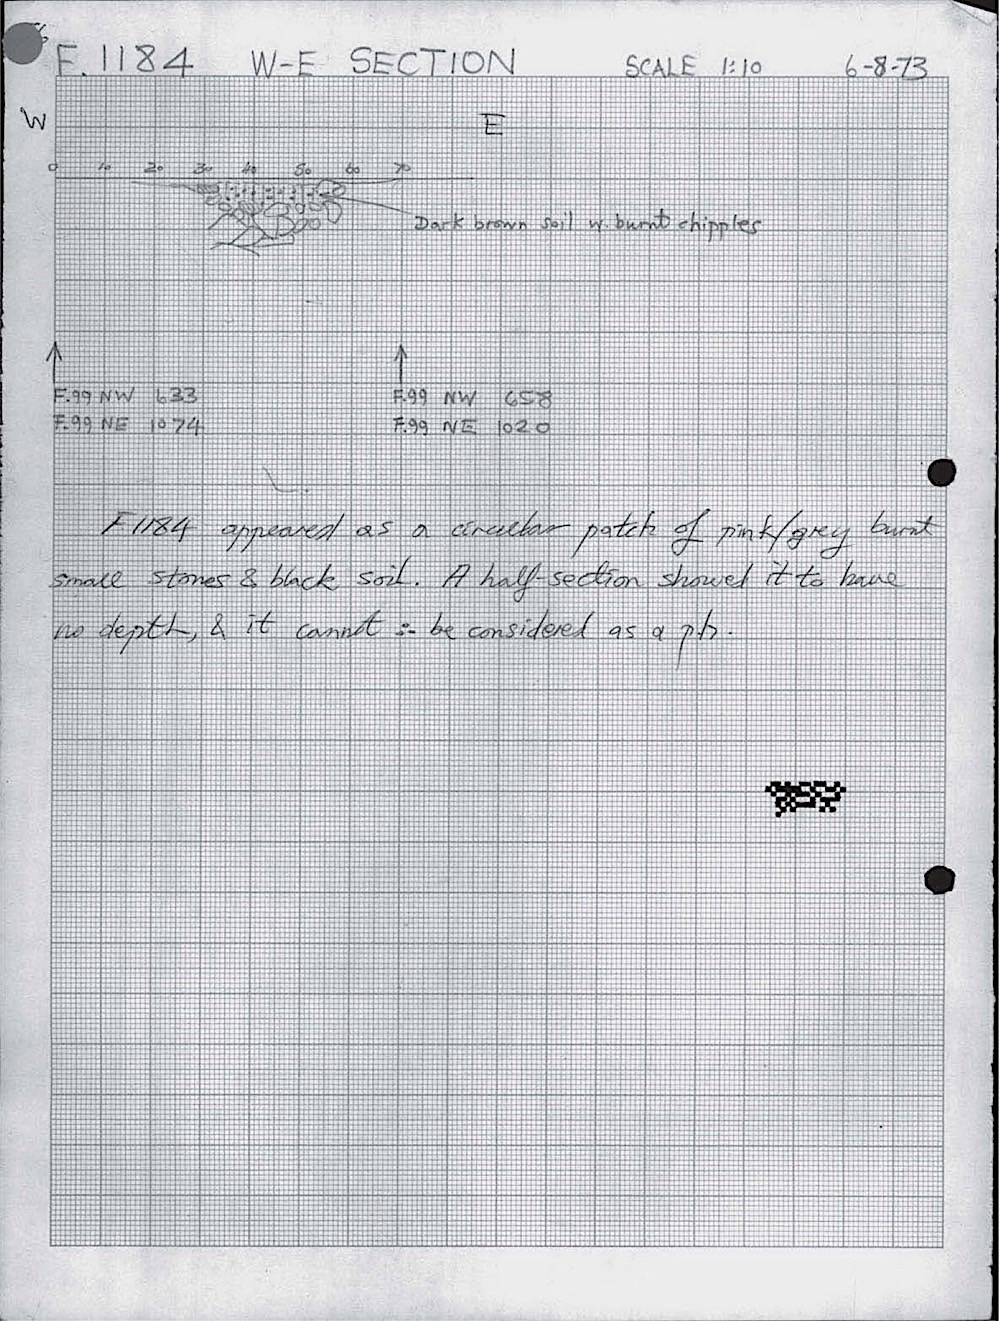 F.1184 W-E SECTION SCALE 1:10 6-8-73
W E
0 10 20 30 40 50 60 70
Dark brown soil w. burnt chipples
F.99 NW 633 F.99 NW 658
F.99 NE 1074 F.99 NE 1020
F1184 appeared as a circular patch of pink/grey burnt
small stones & black soil. A half-section showed it to have
no depth, & it cannot ∴ be considered as a ph.